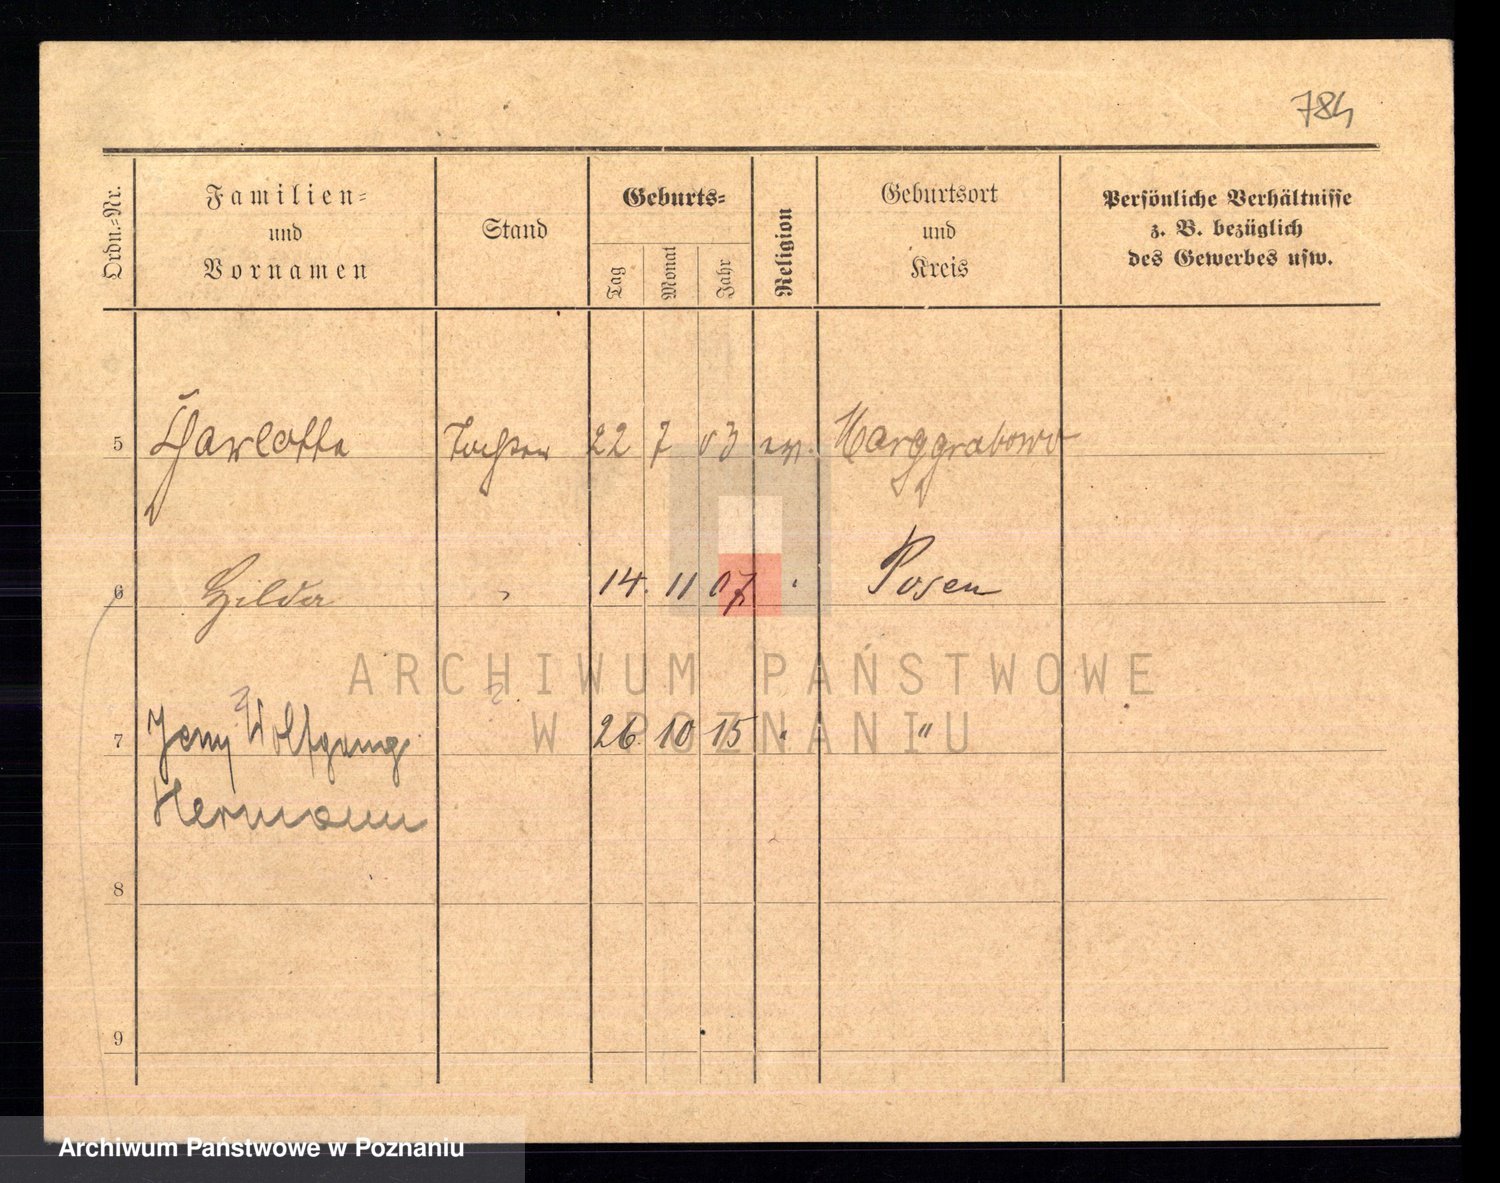 784
Ordn.-Nr.
Familien-
und
Vornamen
Stand
Geburts-
Tag
Monat
Jahr
Religion
Geburtsort
und
Kreis
Persönliche Verhältnisse
z. B. bezüglich
des Gewerbes usw.
5 Charlotte Tochter 22 7 03 ev. Marggrabowo
6 Hilda " 14. 11 07 " Posen
7 Wolfgang 26. 10 15 " "
Hermann
8
9
ARCHIWUM PAŃSTWOWE
W POZNANIU
Archiwum Państwowe w Poznaniu